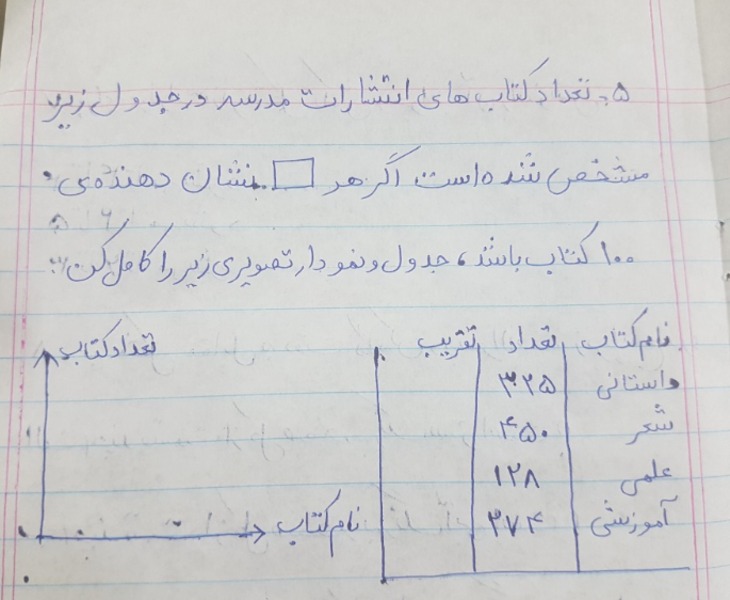 ۵- تعداد کتاب های انتشارات مدرسه در جدول زیر
مشخص شده است اگر هر □ نشان دهنده‌ی
۱۰۰ کتاب باشد، جدول و نمودار تصویری زیر را کامل کن.
نام کتاب تعداد تقریب
داستانی ۳۲۵
شعر ۴۵۰
علمی ۱۲۸
آموزشی ۳۷۴
تعداد کتاب
نام کتاب